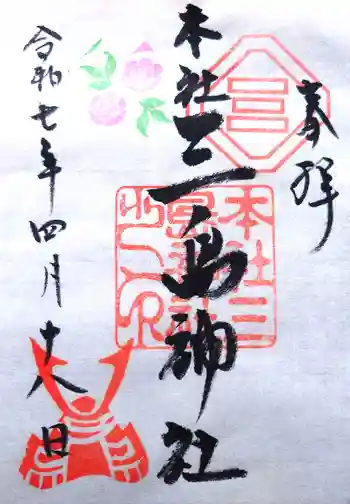 奉拝
本社三島神社
本社三島神社之印
令和七年四月十八日